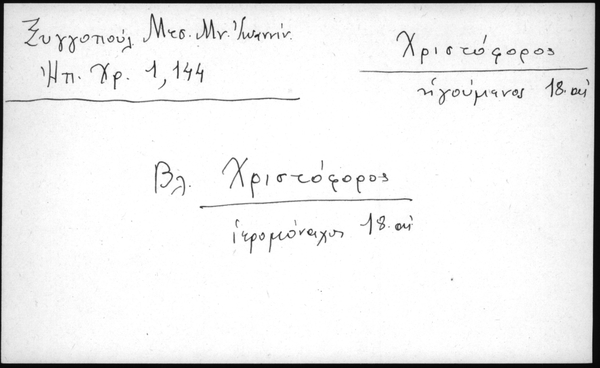 Ξυγγοπούλ Μεσ. Μν. Ἰωαννίν.
Ἠπ. Χρ. 1, 144
Χριστόφορος
ἡγούμενος 18. αἰ
Βλ. Χριστόφορος
ἱερομόναχος 18. αἰ